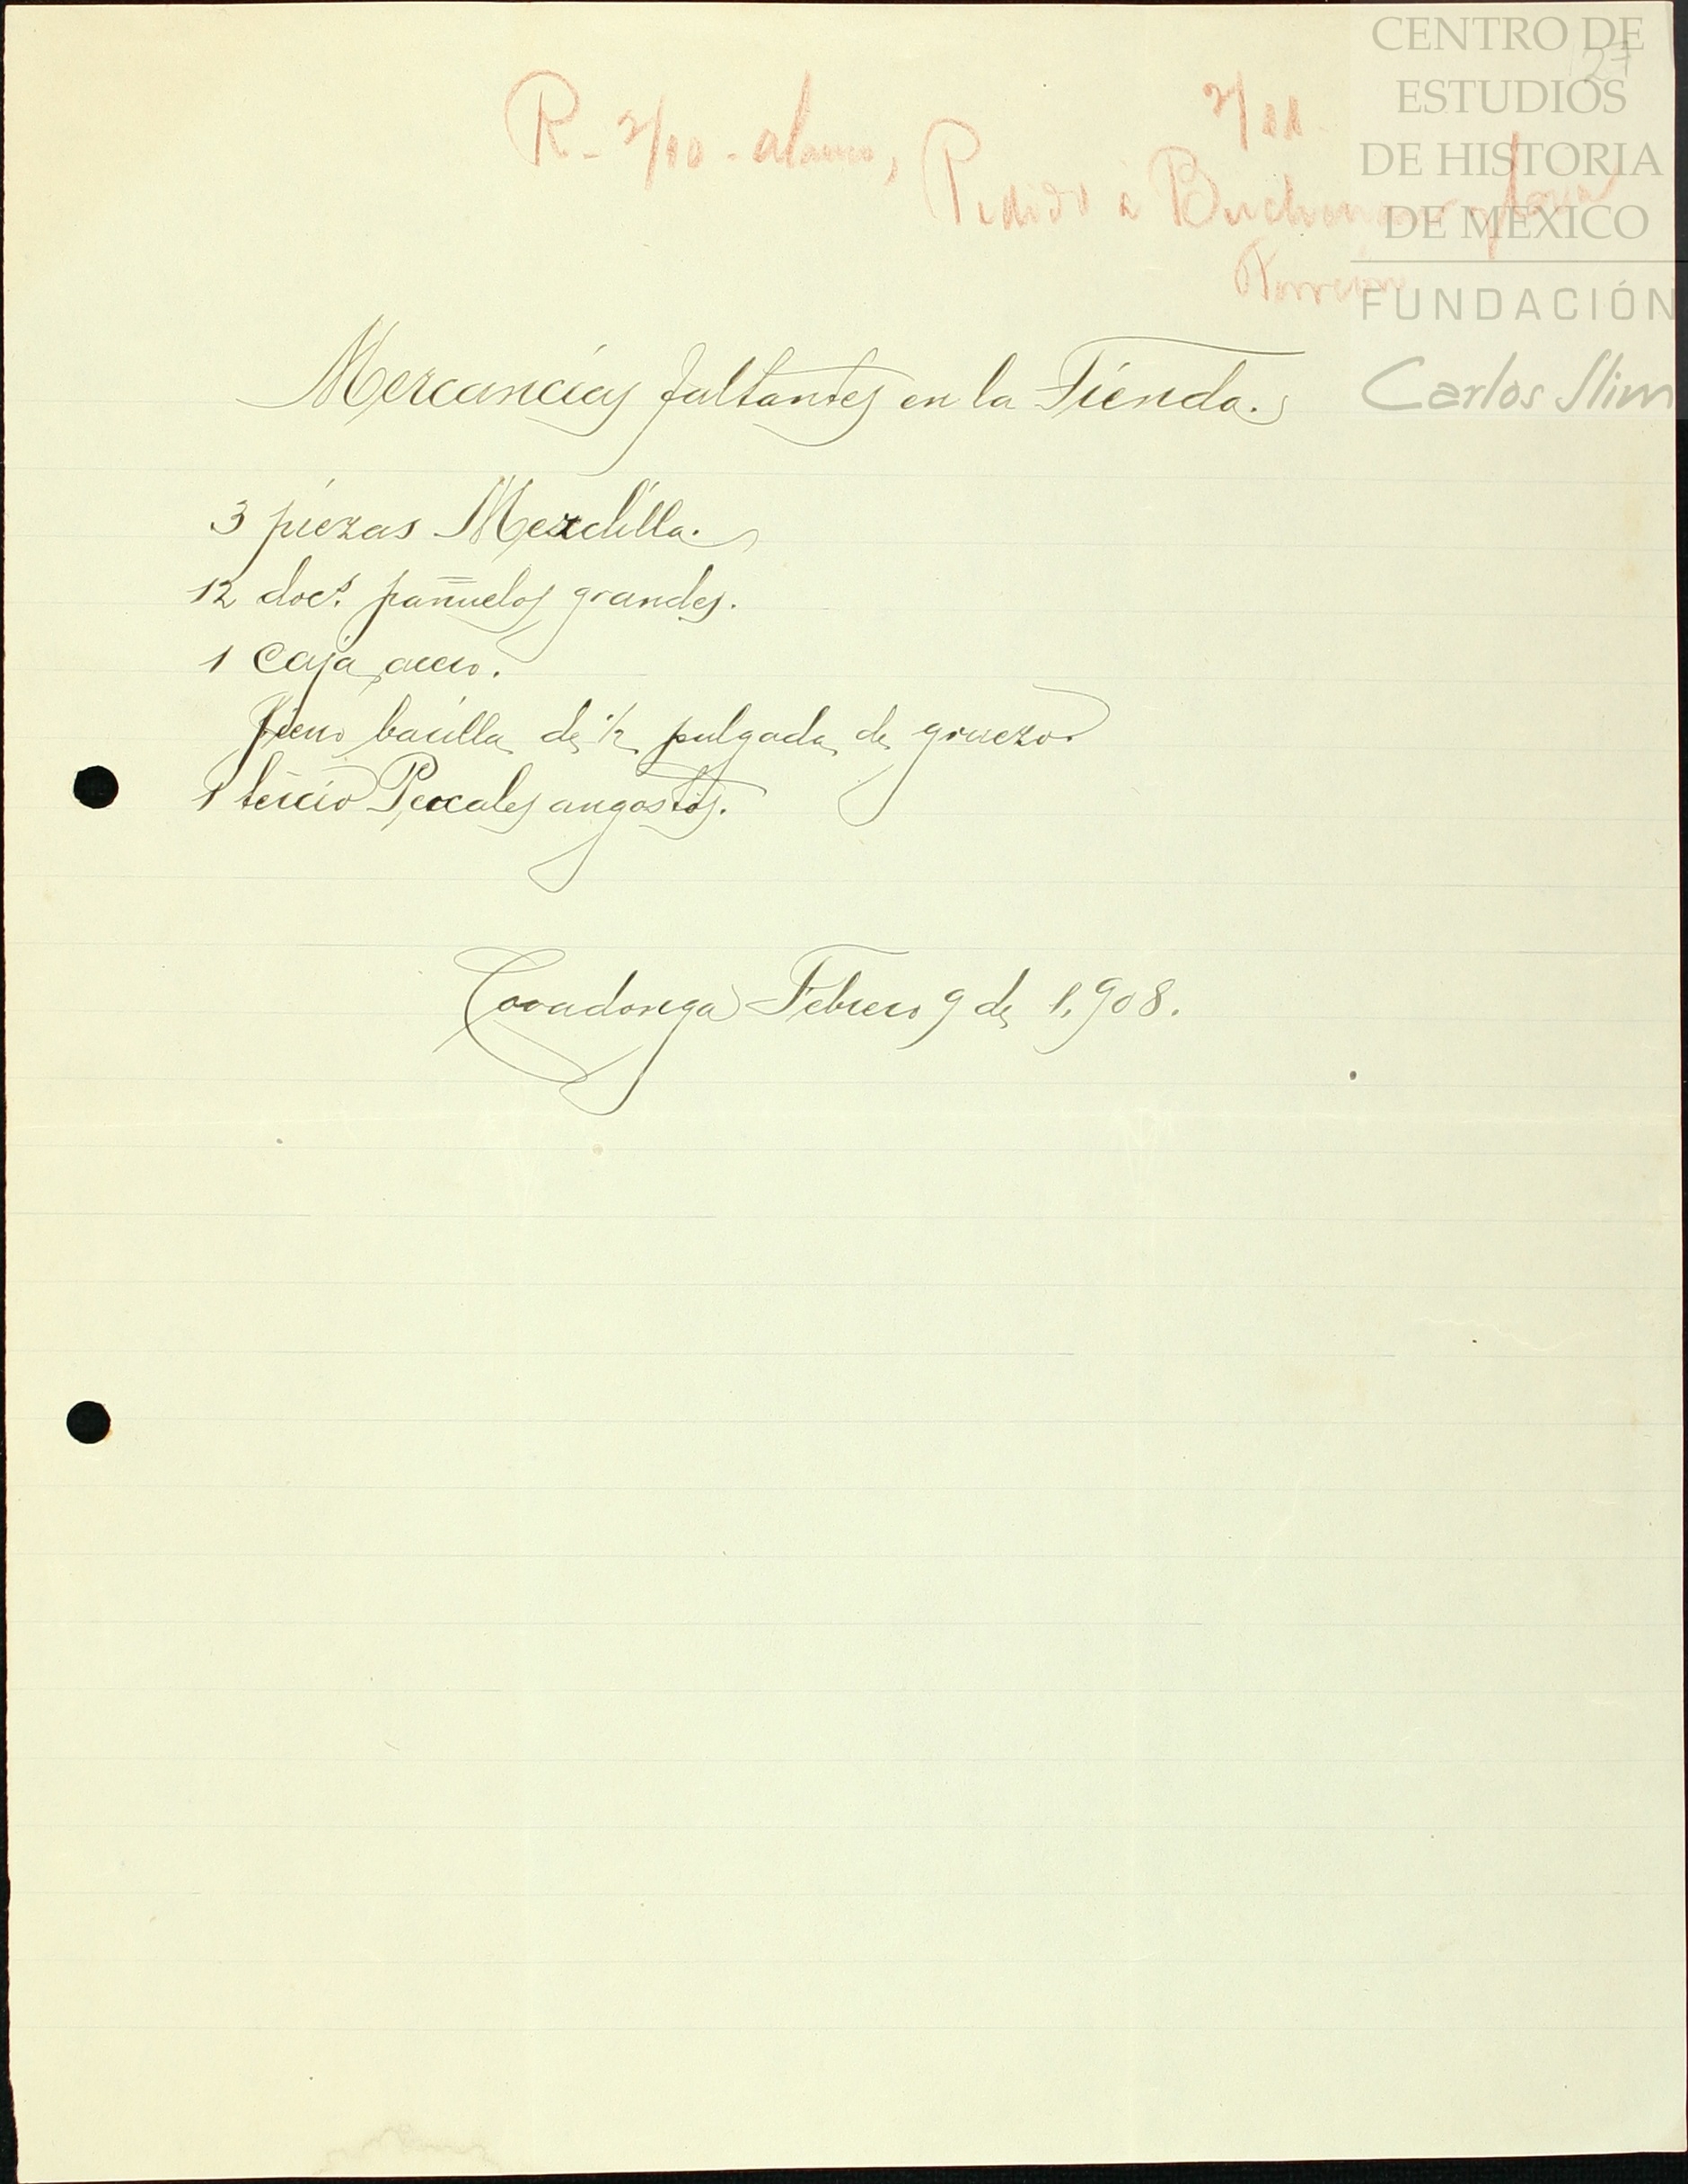 CENTRO DE
ESTUDIOS
DE HISTORIA
DE MEXICO
FUNDACIÓN
Carlos Slim
27
R - 2/10 - alamo,
2/11
Pedido á
Torreón
Mercancias faltantes en la Tienda.
3 piezas Mezclilla.
12 docs. pañuelos grandes.
1 Caja acero.
fierro barilla de 1/2 pulgada de gruezo.
1 tercio Percales angostos.
Covadonga Febrero 9 de 1,908.